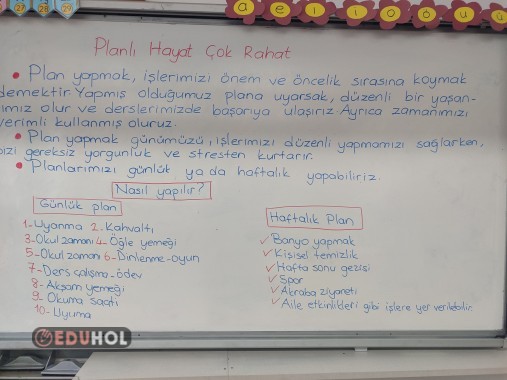 27 28 29
a e ı i o ö u ü
Planlı Hayat Çok Rahat
• Plan yapmak, işlerimizi önem ve öncelik sırasına koymak
demektir. Yapmış olduğumuz plana uyarsak, düzenli bir yaşan-
ımız olur ve derslerimizde başarıya ulaşırız. Ayrıca zamanımızı
verimli kullanmış oluruz.
• Plan yapmak günümüzü, işlerimizi düzenli yapmamızı sağlarken,
bizi gereksiz yorgunluk ve stresten kurtarır.
• Planlarımızı günlük ya da haftalık yapabiliriz.
Nasıl yapılır?
Günlük plan
1-Uyanma 2-Kahvaltı
3-Okul zamanı 4-Öğle yemeği
5-Okul zamanı 6-Dinlenme-oyun
7-Ders çalışma-ödev
8-Akşam yemeği
9-Okuma saati
10-Uyuma
Haftalık Plan
✓Banyo yapmak
✓Kişisel temizlik
✓Hafta sonu gezisi
✓Spor
✓Akraba ziyareti
✓Aile etkinlikleri gibi işlere yer verilebilir.
EDUHOL